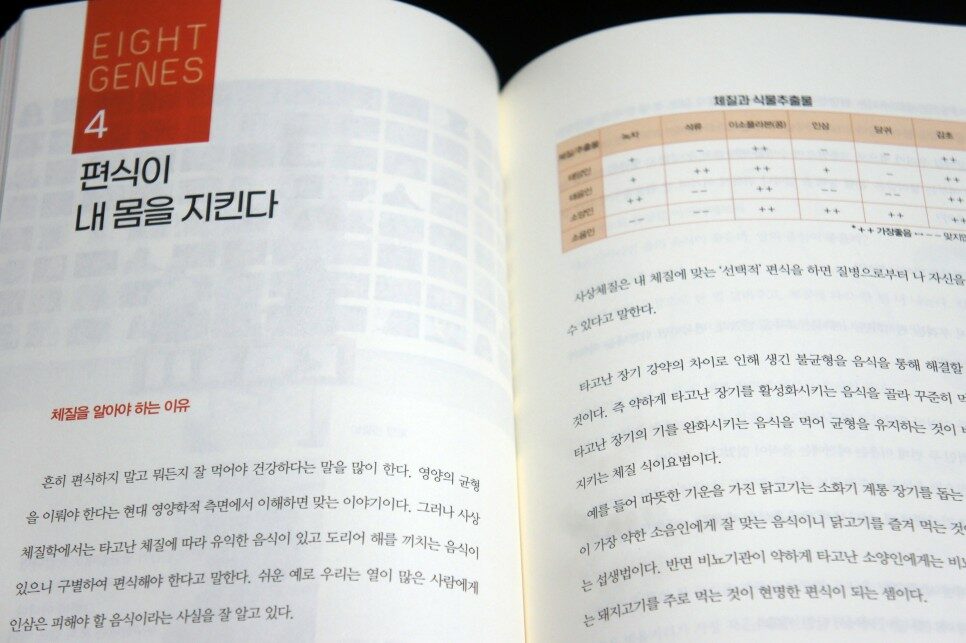 EIGHT
GENES
4
편식이
내 몸을 지킨다
체질을 알아야 하는 이유
흔히 편식하지 말고 뭐든지 잘 먹어야 건강하다는 말을 많이 한다. 영양의 균형
을 이뤄야 한다는 현대 영양학적 측면에서 이해하면 맞는 이야기이다. 그러나 사상
체질학에서는 타고난 체질에 따라 유익한 음식이 있고 도리어 해를 끼치는 음식이
있으니 구별하여 편식해야 한다고 말한다. 쉬운 예로 우리는 열이 많은 사람에게
인삼은 피해야 할 음식이라는 사실을 잘 알고 있다.
체질과 식물추출물
체질/추출물 녹차 석류 이소플라본(콩) 인삼 당귀 감초
태양인 + − ++ − − ++
태음인 + ++ ++ + − ++
소양인 ++ −− ++ −− −− ++
소음인 −− −− ++ ++ ++ ++
*++ 가장좋음 ↔ −− 맞지만
사상체질은 내 체질에 맞는 '선택적' 편식을 하면 질병으로부터 나 자신을
수 있다고 말한다.
타고난 장기 강약의 차이로 인해 생긴 불균형을 음식을 통해 해결할
것이다. 즉 약하게 타고난 장기를 활성화시키는 음식을 골라 꾸준히
타고난 장기의 기를 완화시키는 음식을 먹어 균형을 유지하는 것이
지키는 체질 식이요법이다.
예를 들어 따뜻한 기운을 가진 닭고기는 소화기 계통 장기를 돕는
이 가장 약한 소음인에게 잘 맞는 음식이니 닭고기를 즐겨 먹는
는 섭생법이다. 반면 비뇨기관이 약하게 타고난 소양인에게는
는 돼지고기를 주로 먹는 것이 현명한 편식이 되는 셈이다.